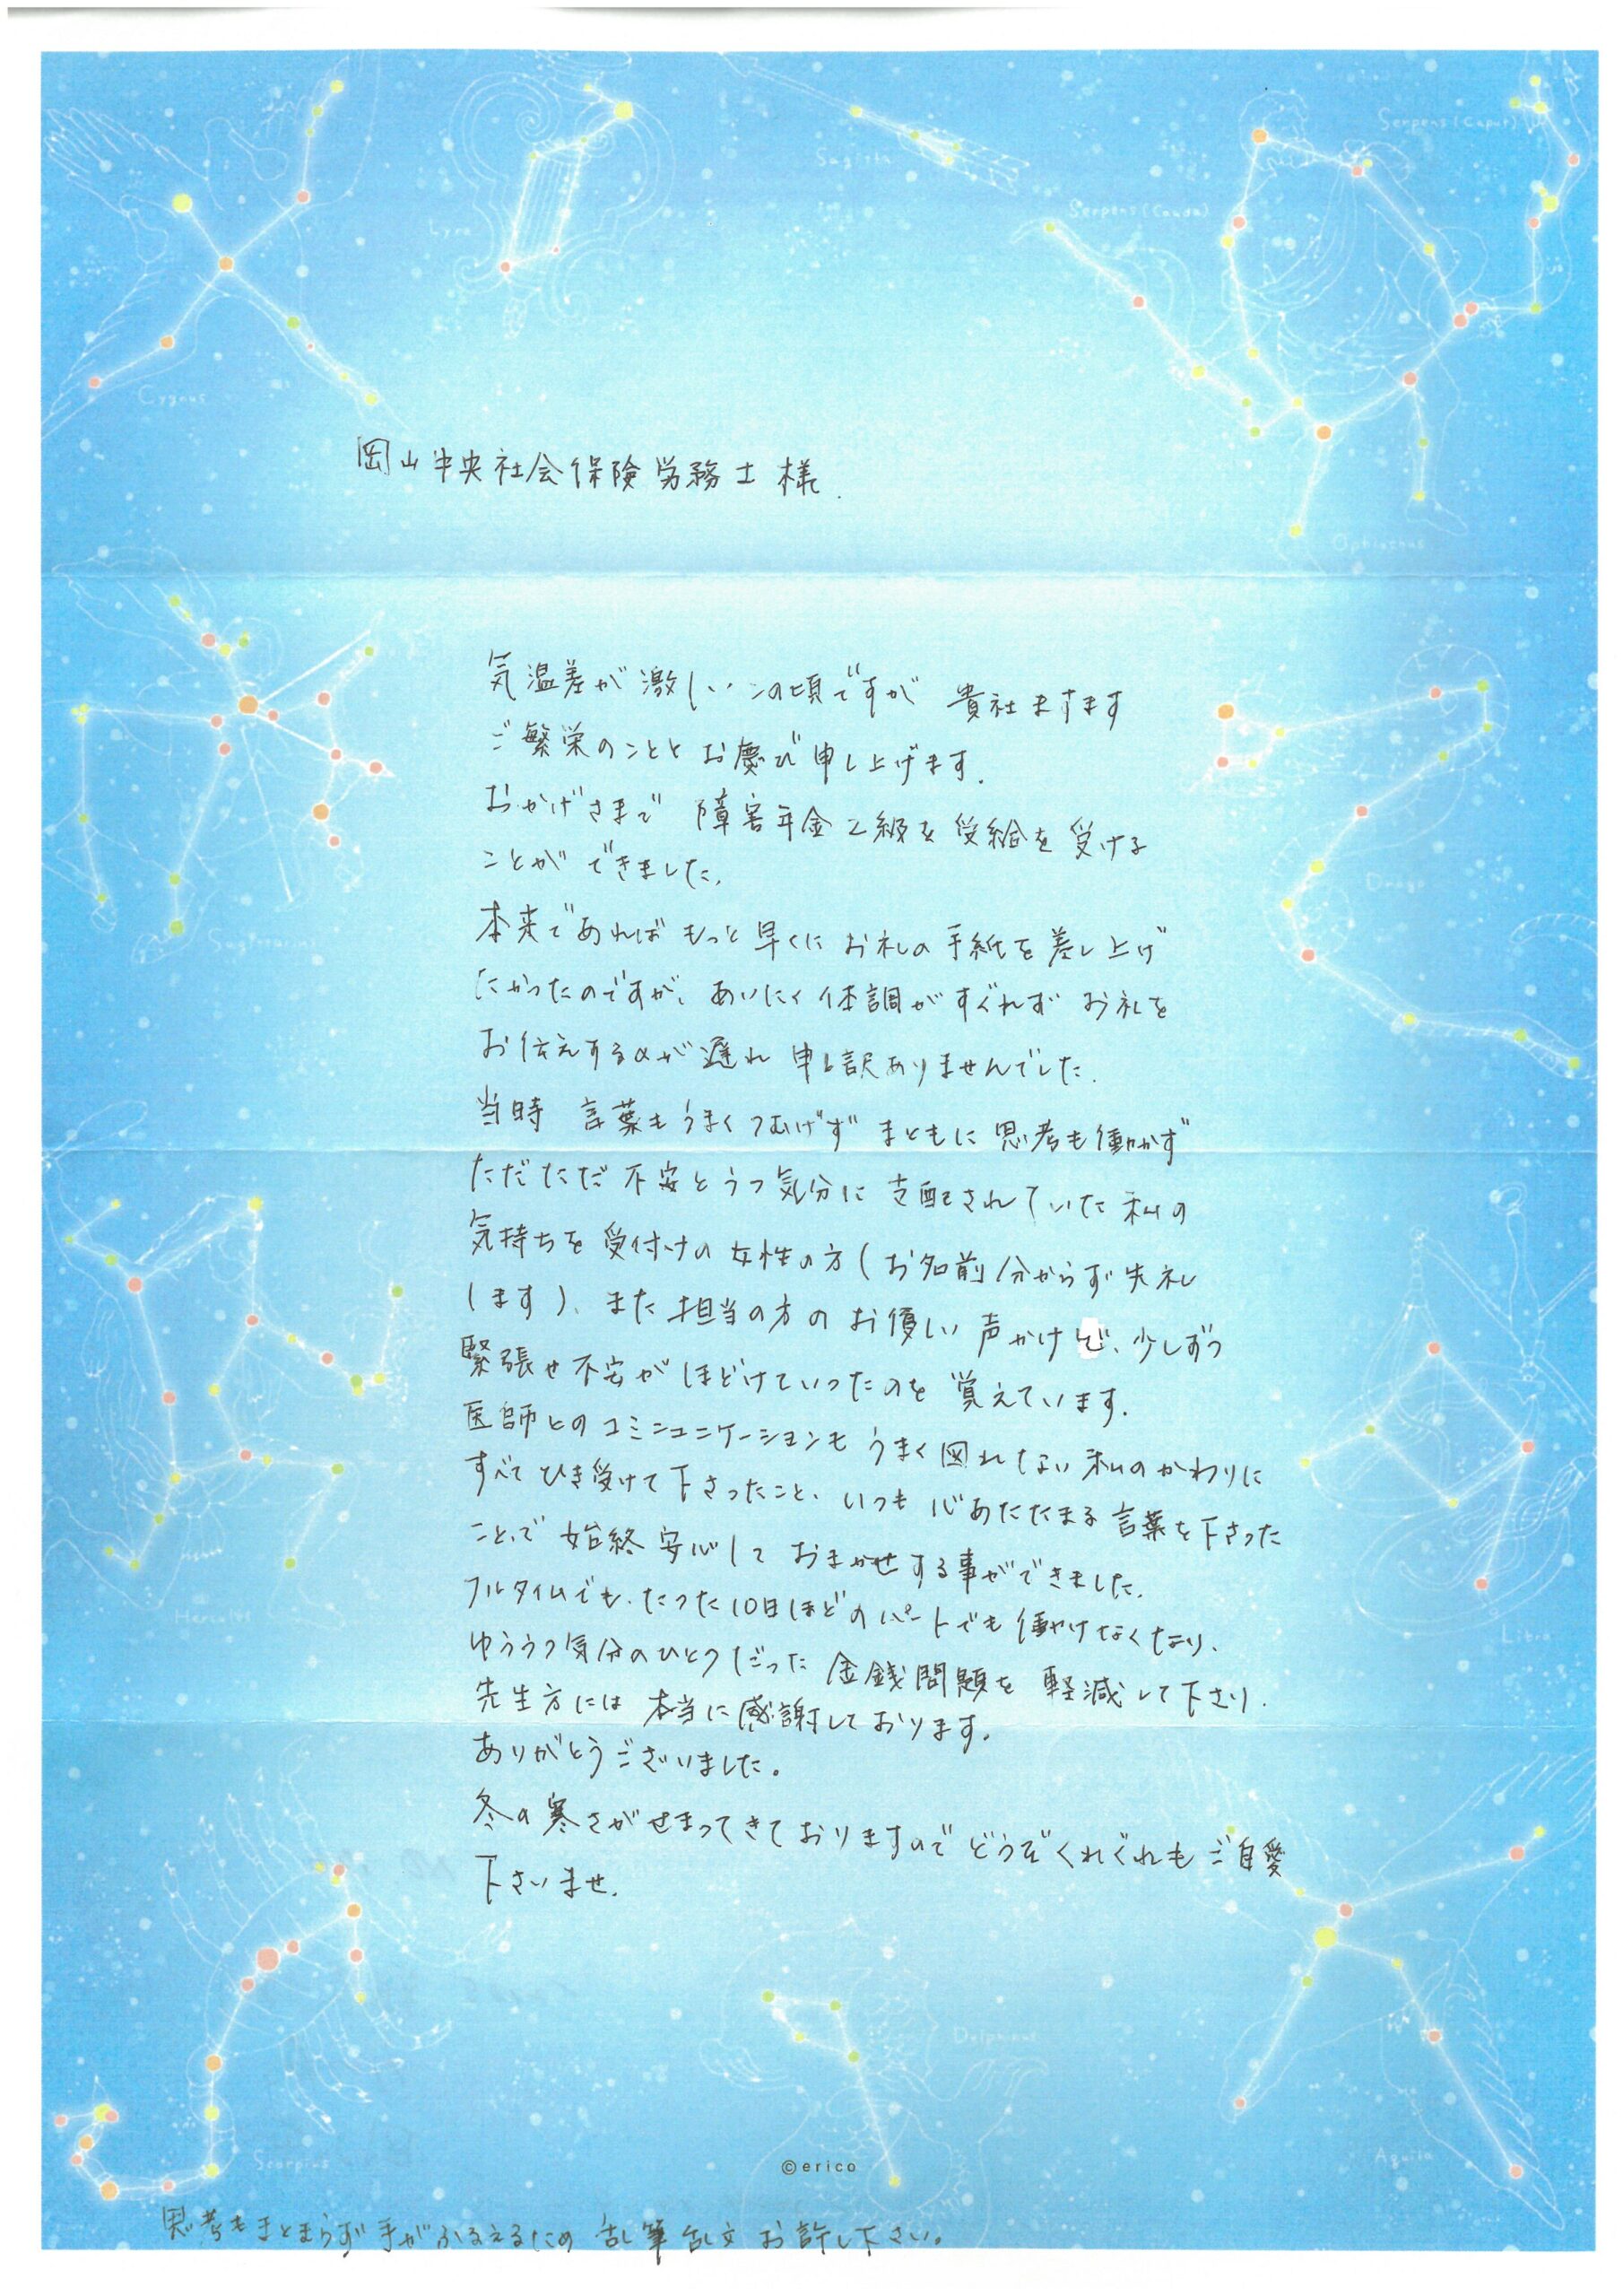 Cygnus
Lyra
Sagitta
Serpens (Cauda)
Serpens (Caput)
Ophiuchus
岡山中央社会保険労務士 様.
気温差が激しいこの頃ですが 貴社ますます
ご繁栄のこととお慶び申し上げます.
おかげさまで 障害年金2級を受給を受ける
ことが できました.
本来であればもっと早くに お礼の手紙を差し上げ
たかったのですが、あいにく体調がすぐれず お礼を
お伝えするのが遅れ 申し訳ありませんでした.
当時 言葉もうまくつむげず まともに思考も働かず
ただただ 不安とうつ気分に支配されていた私の
気持ちを受付けの女性の方(お名前分からず失礼
します)、また担当の方のお優しい声かけで、少しずつ
緊張せ不安がほどけていったのを覚えています.
医師とのコミニュニケーションもうまく図れない私のかわりに
すべてひき受けて下さったこと、いつも心あたたまる言葉を下さった
ことで 始終安心して おまかせする事ができました.
フルタイムでも、たった10日ほどのパートでも働けなくなり、
ゆううつ気分のひとつだった 金銭問題を軽減して下さり.
先生方には 本当に感謝しております.
ありがとうございました。
冬の寒さがせまってきておりますので どうぞくれぐれもご自愛
下さいませ.
Sagittarius
Draco
Hercules
Libra
Scorpius
Delphinus
Aquila
©erico
思考もまとまらず手がふるえるための 乱筆乱文お許し下さい。